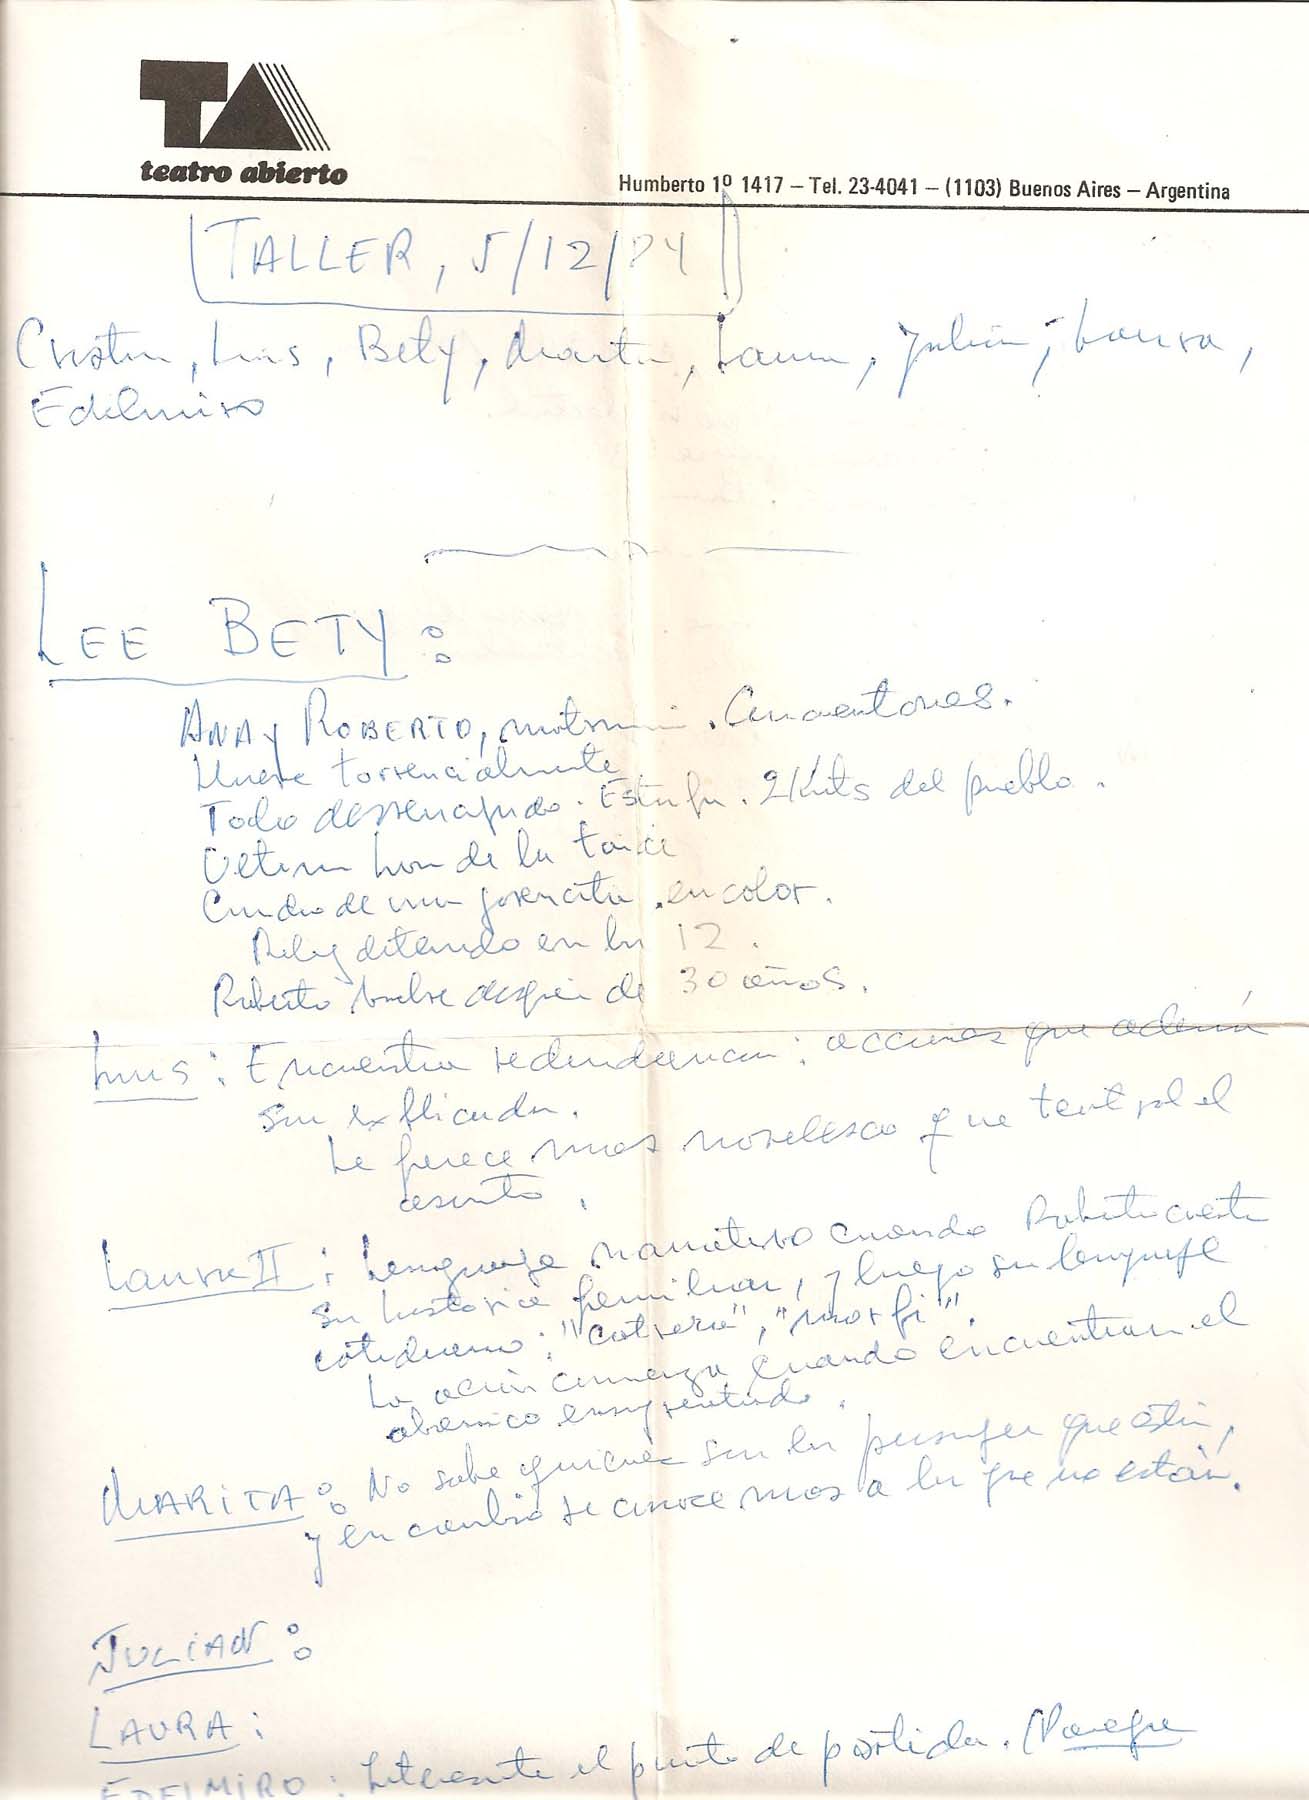 TA
teatro abierto
Humberto 1º 1417 – Tel. 23-4041 – (1103) Buenos Aires – Argentina
TALLER, 5/12/84
Cristin, Luis, Bety, Marita, Laura, Julián, Laura,
Edelmiro
LEE BETY:
ANA y ROBERTO, matrimonio. Cincuentones.
Llueve torrencialmente
Todo desvencijado. Estufa. 2 Kmts del pueblo.
Ultima hora de la tarde
Cuadro de una jovencita, en color.
Reloj detenido en las 12.
Roberto vuelve después de 30 años.
Luis: Encuentra redundancias: acciones que además
son explicadas.
Le parece mas novelesco que teatral el
asunto.
Laura II: Lenguaje narrativo cuando Roberto cuenta
su historia familiar, y luego su lenguaje
cotidiano: "catrera", "morfi".
La acción comienza cuando encuentran el
abanico ensangrentado.
MARITA: No sabe quienes son los personajes que están,
y en cambio se conoce mas a los que no están.
JULIAN:
LAURA:
EDELMIRO: Interesante el punto de partida.